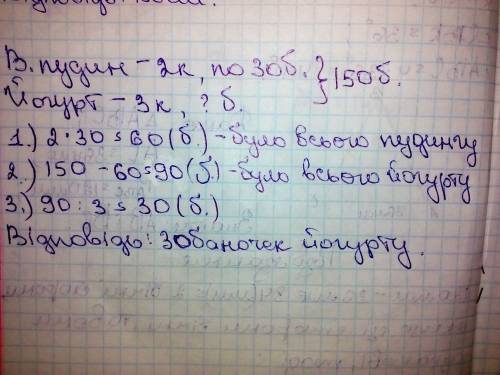 В. пудин - 2к, по 30б. } 150б.
Йогурт - 3к, ? б.
1.) 2·30 = 60 (б.) - було всього пудингу
2.) 150 - 60 = 90 (б.) - було всього йогурту
3.) 90 : 3 = 30 (б.)
Відповідь: 30баночек йогурту.